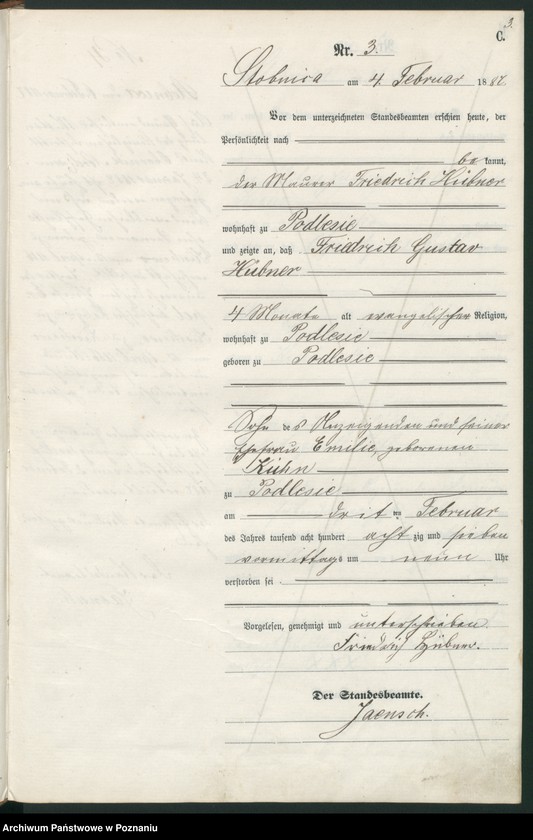 3.
C.
Nr. 3.
Stobnica am 4. Februar 1887.
Vor dem unterzeichneten Standesbeamten erschien heute, der
Persönlichkeit nach
be kannt,
der Maurer Friedrich Hübner
wohnhaft zu Podlesie
und zeigte an, daß Fridrich Gustav
Hübner
4 Monate alt evangelischer Religion,
wohnhaft zu Podlesie
geboren zu Podlesie
Sohn des Anzeigenden und seiner
Ehefrau Emilie, geborenen
Kühn
zu Podlesie
am drit ten Februar
des Jahres tausend acht hundert acht zig und sieben
vormittags um neun Uhr
verstorben sei.
Vorgelesen, genehmigt und unterschrieben
Friedrich Hübner.
Der Standesbeamte.
Jaensch.
Archiwum Państwowe w Poznaniu